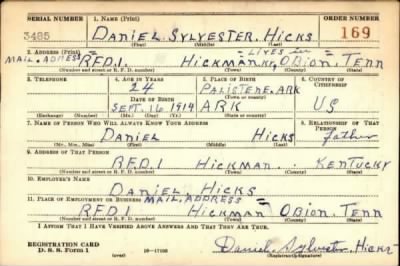 SERIAL NUMBER 1. NAME (Print) ORDER NUMBER
3485 DANIEL SYLVESTER HICKS 169
(First) (Middle) (Last)
2. ADDRESS (Print) LIVES in
MAIL ADDRESS = RFD.1. HICKMAN KY, OBION, TENN
(Number and street or R. F. D. number) (Town) (County) (State)
3. TELEPHONE 4. AGE IN YEARS 5. PLACE OF BIRTH 6. COUNTRY OF CITIZENSHIP
24 PALISTENE, ARK
DATE OF BIRTH
SEPT. 16 1914 ARK US
(Exchange) (Number) (Mo.) (Day) (Yr.) (State or country)
7. NAME OF PERSON WHO WILL ALWAYS KNOW YOUR ADDRESS 8. RELATIONSHIP OF THAT PERSON
DANIEL HICKS father
(Mr., Mrs., Miss) (First) (Middle) (Last)
9. ADDRESS OF THAT PERSON
R.F.D.1 HICKMAN KENTUCKY
(Number and street or R. F. D. number) (Town) (County) (State)
10. EMPLOYER'S NAME
DANIEL HICKS
11. PLACE OF EMPLOYMENT OR BUSINESS MAIL ADDRESS =
RFD1 HICKMAN OBION, TENN
(Number and street or R. F. D. number) (Town) (County) (State)
I AFFIRM THAT I HAVE VERIFIED ABOVE ANSWERS AND THAT THEY ARE TRUE.
REGISTRATION CARD
D. S. S. Form 1 (over) Daniel Sylvester Hicks
(Registrant's Signature)